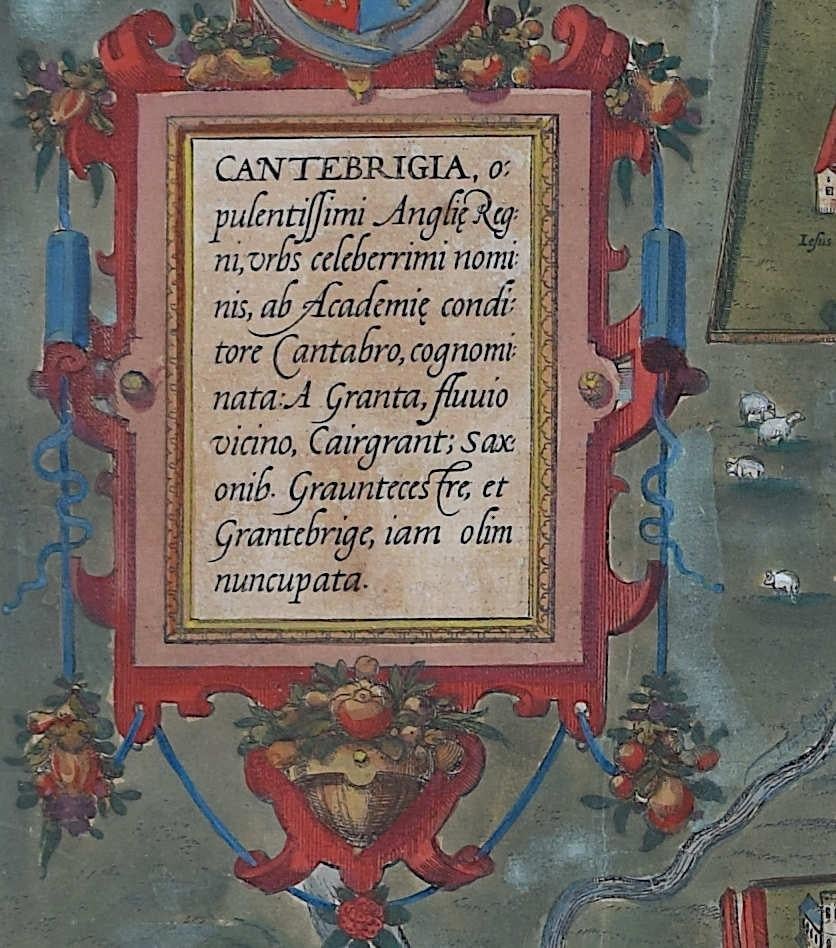 CANTEBRIGIA, o:
pulentissimi Anglię Reg:
ni, vrbs celeberrimi nomi:
nis, ab Academię condi:
tore Cantabro, cognomi:
nata: A Granta, fluuio
vicino, Cairgrant; Sax:
onib. Grauntecestre, et
Grantebrige, iam olim
nuncupata.
Iesus